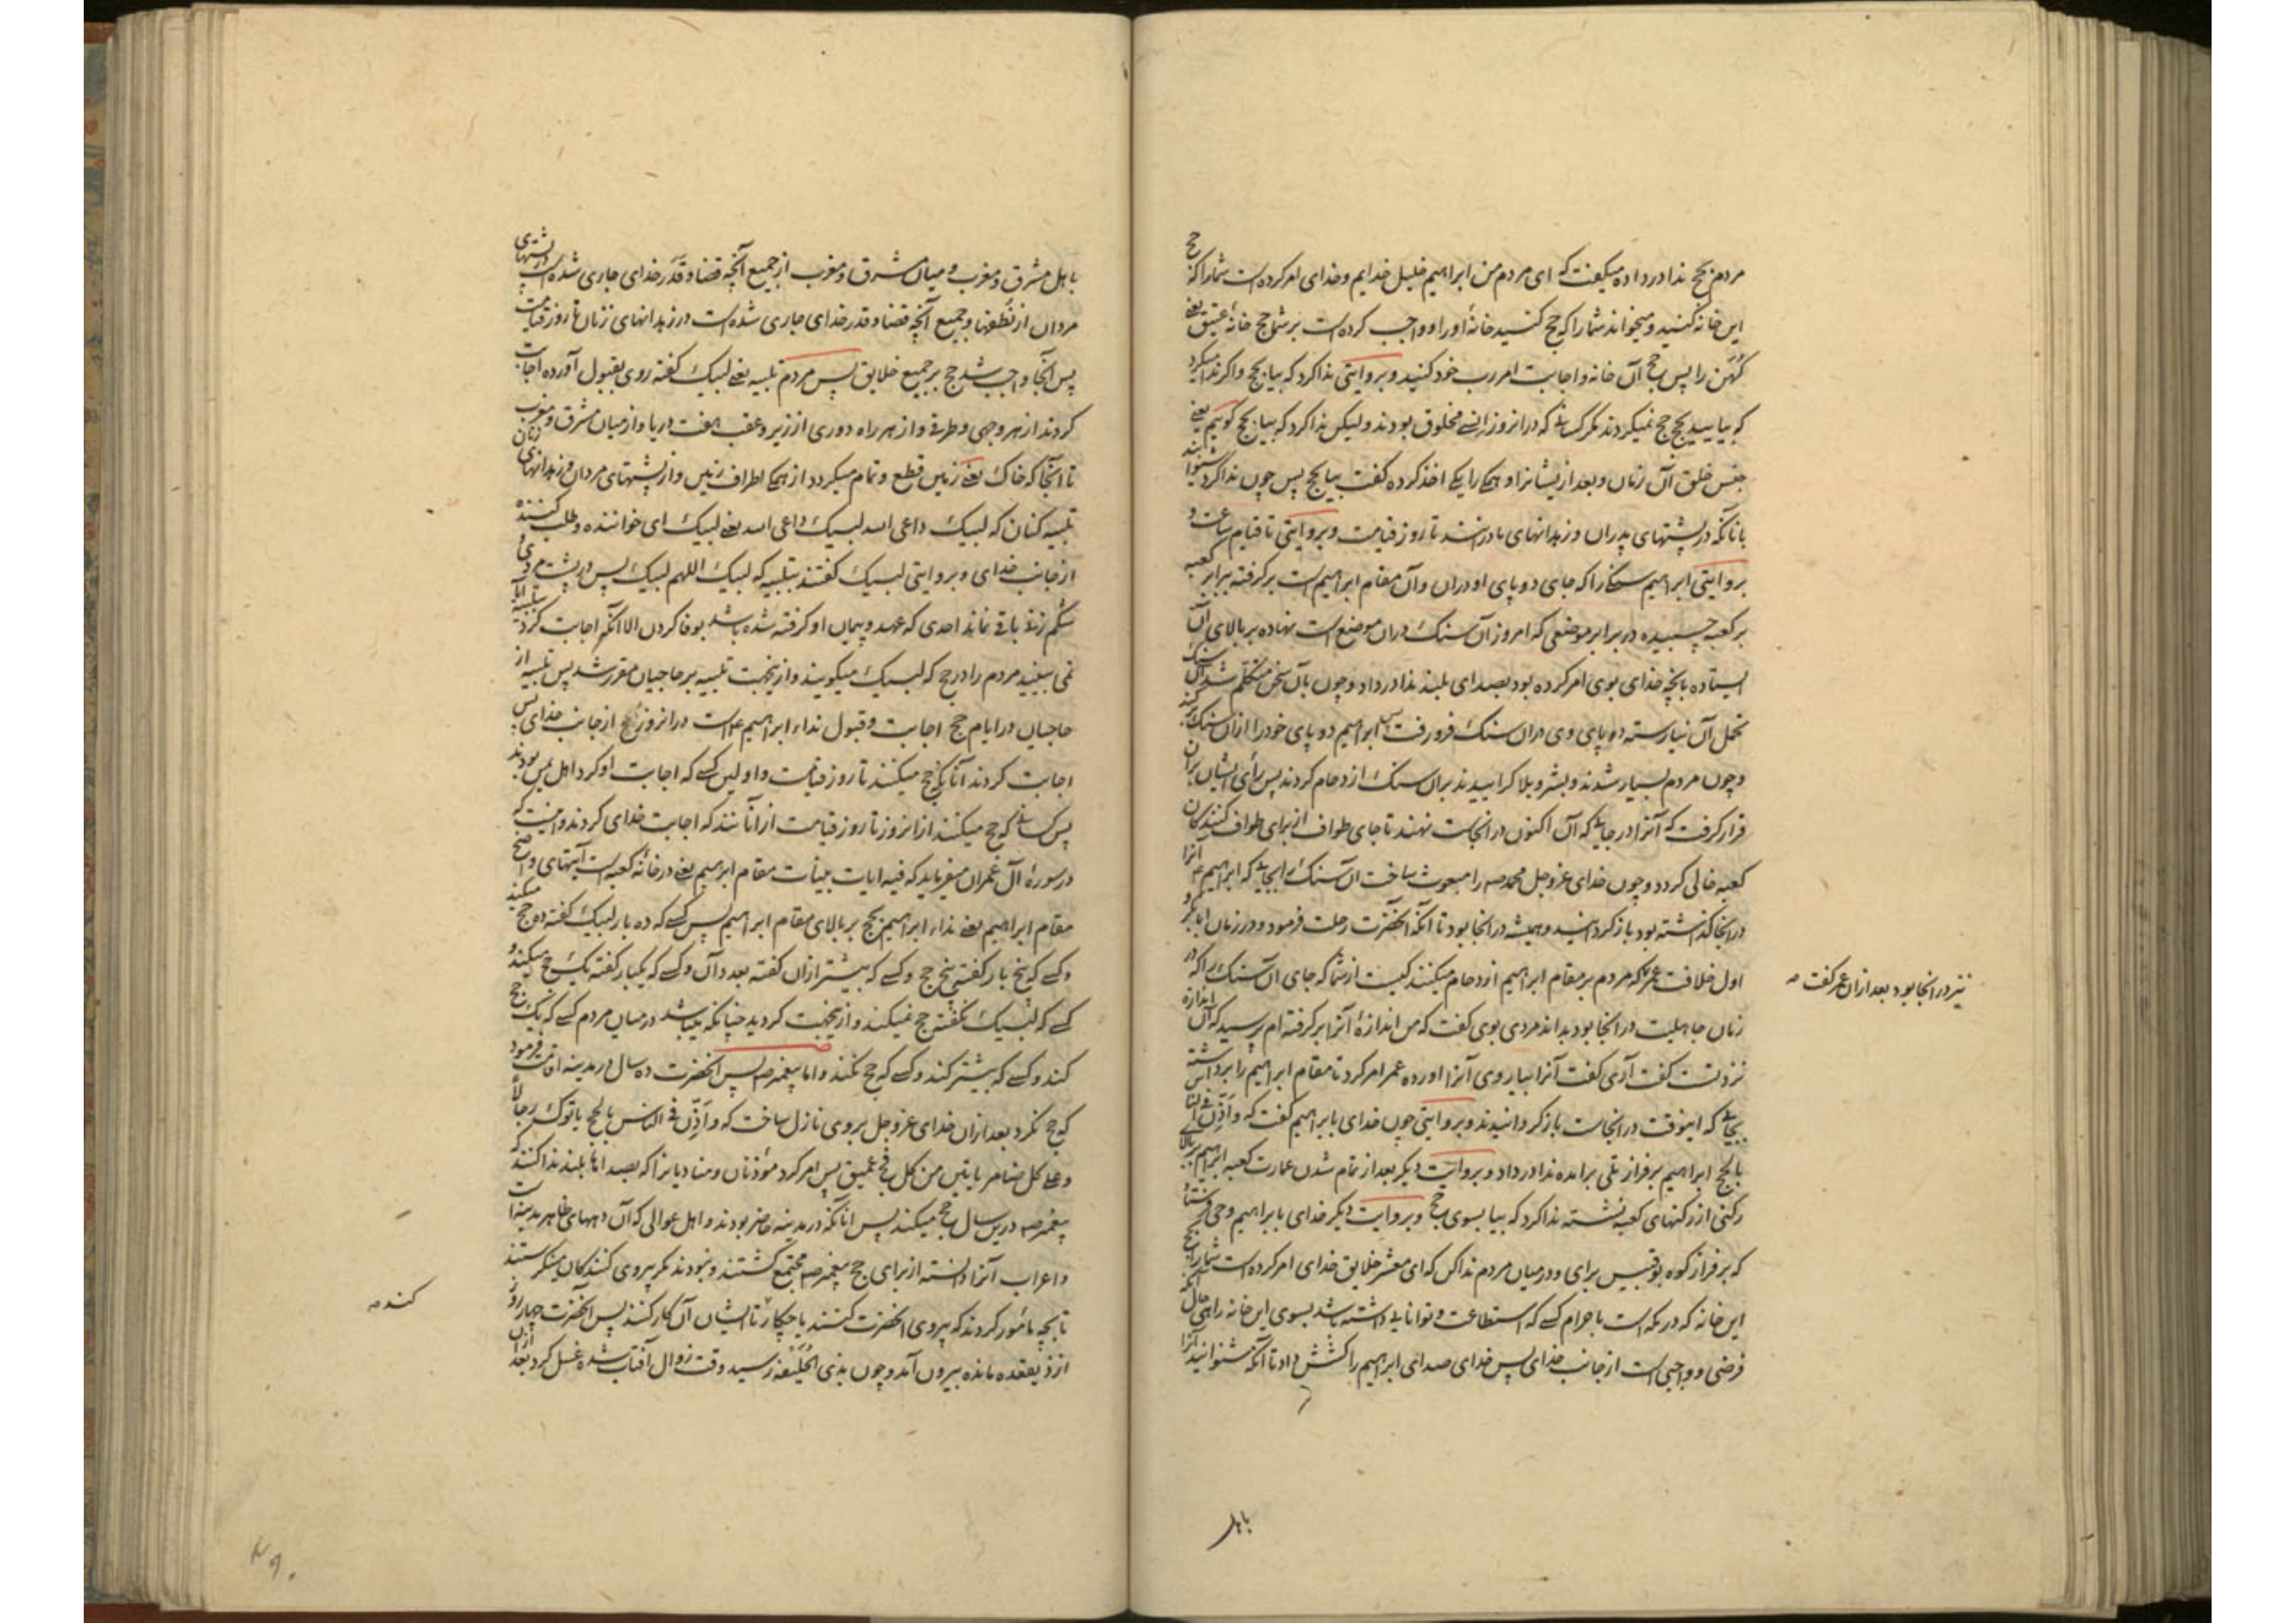 مردم بحج ندا درداده میگفت که ای مردم من ابراهیم خلیل خدایم و خدای امر کرده است شما را که حج
این خانه کنید و میخواند شما را که حج کنید خانهٔ او را و واجب کرده است بر شما حج خانهٔ عتیق یعنی
کهن را پس حج آن خانه و اجابت امر رب خود کنید و بروایتی ندا کرد که بیا بحج و اگر ندا میکرد
که بیایید بحج حج نمیکردند مگر کسانی که در انروز انسی مخلوق بودند و لیکن ندا کرد که بیا بحج گوییم یعنی
جنس خلق آن زمان و بعد از یشانرا و همه را یکی اخذ کرده گفت بیا بحج پس چون ندا کرد شنوانید
بانانکه در پشتهای پدران و زهدانهای مادرانند تا روز قیامت و بروایتی تا قیام ساعت و
بروایتی ابراهیم سنگی را که جای دو پای او دران و آن مقام ابراهیم است برگرفته برابر کعبه
بر کعبه چسبیده در برابر موضعی که امروز آن سنگ دران موضع است نهاده بر بالای آن
ایستاده بانچه خدای بوی امر کرده بود بصدای بلند ندا درداد و چون بآن سخن متکلم شد آن سنگ
تحمل آن نیارسته دو پای وی دران سنگ فرو رفت پس ابراهیم دو پای خود را ازان سنگ بر کند
و چون مردم بسیار شدند و بشر و بلا گراییدند بران سنگ ازدحام کردند پس رأی ایشان بران
قرار گرفت که آنرا در جایی که آن اکنون در انجاست نهند تا جای طواف از برای طواف کنندگان
کعبه خالی گردد و چون خدای عز و جل محمد صه را مبعوث ساخت ان سنگ را بجایی که ابراهیم ع آنرا
در انجا گذاشته بود باز گردانید و همیشه در انجا بود تا آنکه آنحضرت رحلت فرمود و در زمان ابا بکر و
اول خلافت عمر که مردم بر مقام ابراهیم ازدحام میکنند کیست از شما که جای ان سنگ را که در
نیز در انجا بود بعد ازان عمر گفت صه
زمان جاهلیت در انجا بود بداند مردی بوی گفت که من اندازهٔ آنرا برگرفته ام پرسید که آن اندازه
نزد تست گفت آری گفت آنرا بیار وی آنرا اورده عمر امر کرد تا مقام ابراهیم را برداشته
بجایی که اینوقت در انجاست باز گردانیدند و بروایتی چون خدای بابراهیم گفت که و اذن فی الناس
بالحج ابراهیم بر فراز تلی برامده ندا درداد و بروایت دیگر بعد از تمام شدن عمارت کعبه ابراهیم بر بالای
رکنی از رکنهای کعبه نشسته ندا کرد که بیا بسوی حج و بروایت دیگر خدای بابراهیم وحی فرستاد
که بر فراز کوه بوقبیس برای و در میان مردم ندا کن که ای معشر خلایق خدای امر کرده است شما را بحج
این خانه که در مکه است با حرام کسی که استطاعت و توانایی داشته باشد بسوی این خانه راهی حال آنکه
فرضی و واجبی است از جانب خدای پس خدای صدای ابراهیم را کشش داد تا آنکه شنوانید آنرا
باهل
باهل مشرق و مغرب و میان مشرق و مغرب از جمیع آنچه قضا و قدر خدای جاری شده است در پشتهای
مردان از نطفها و جمیع آنچه قضا و قدر خدای جاری شده است در زهدانهای زنان تا روز قیامت
پس آنجا واجب شد حج بر جمیع خلایق پس مردم تلبیه یعنی لبیک گفته روی بقبول آورده اجابت
کردند از هر وجهی و طرفی و از هر راه دوری از زیر و عقب هفت دریا و از میان مشرق و مغرب
تا انجا که خاک یعنی زمین قطع و تمام میگردد از همه اطراف زمین و از پشتهای مردان و زهدانهای زنان
تلبیه کنان که لبیک داعی الله لبیک داعی الله یعنی لبیک ای خواننده و طلب کننده
از جانب خدای و بروایتی لبیک گفتند بتلبیه که لبیک اللهم لبیک پس در پشت مردی و
شکم زنی باقی نماند احدی که عهد و پیمان او گرفته شده باشد بوفا کردن الا آنکه اجابت کرد بتلبیه ایا
نمی بینید مردم را در حج که لبیک میگویند و ازینجهت تلبیه بر حاجیان مقرر شد پس تلبیه از
حاجیان در ایام حج اجابت و قبول نداء ابراهیم ع است در انروز بحج از جانب خدای پس
اجابت کردند آنانکه حج میکنند تا روز قیامت و اولین کسی که اجابت او کرد اهل یمن بودند
پس کسانی که حج میکنند از انروز تا روز قیامت از انانند که اجابت خدای کردند و اینست که
در سورهٔ آل عمران میفرماید که فیه ایات بینات مقام ابراهیم یعنی در خانهٔ کعبه است آیتهای واضح
مقام ابراهیم یعنی نداء ابراهیم بحج بر بالای مقام ابراهیم پس کسی که ده بار لبیک گفته ده حج میکند
و کسی که پنج بار گفته پنج حج و کسی که بیشتر ازان گفته بعدد آن و کسی که یکبار گفته یک حج میکند و
کسی که لبیک نگفته حج نمیکند و ازینجهت گردید چنانکه میباشد در میان مردم کسی که یک حج
کند و کسی که بیشتر کند و کسی که حج نکند و اما پیغمبر صه پس آنحضرت ده سال در مدینه اقامت فرمود
که حج نکرد بعد ازان خدای عز و جل بروی نازل ساخت که و اذن فی الناس بالحج یاتوک رجالا
و علی کل ضامر یاتین من کل فج عمیق پس امر کرد مؤذنان و منادیانرا که بصداهای بلند ندا کنند که
پیغمبر صه درین سال حج میکند پس انانکه در مدینه حاضر بودند و اهل عوالی که آن دههای ظاهر مدینه است
و اعراب آنرا دانسته از برای حج پیغمبر صه مجتمع گشتند و نبودند مگر پیروی کنندگان منتظرستند
تا بچه مأمور گردند که پیروی آنحضرت کنند یا چکار تا ایشان آن کار کنند پس آنحضرت چهار روز
کند صه
از ذیقعده مانده بیرون آمد و چون بذی الحلیفه رسید وقت زوال آفتاب شده غسل کرد بعد ازان
۲۹۰